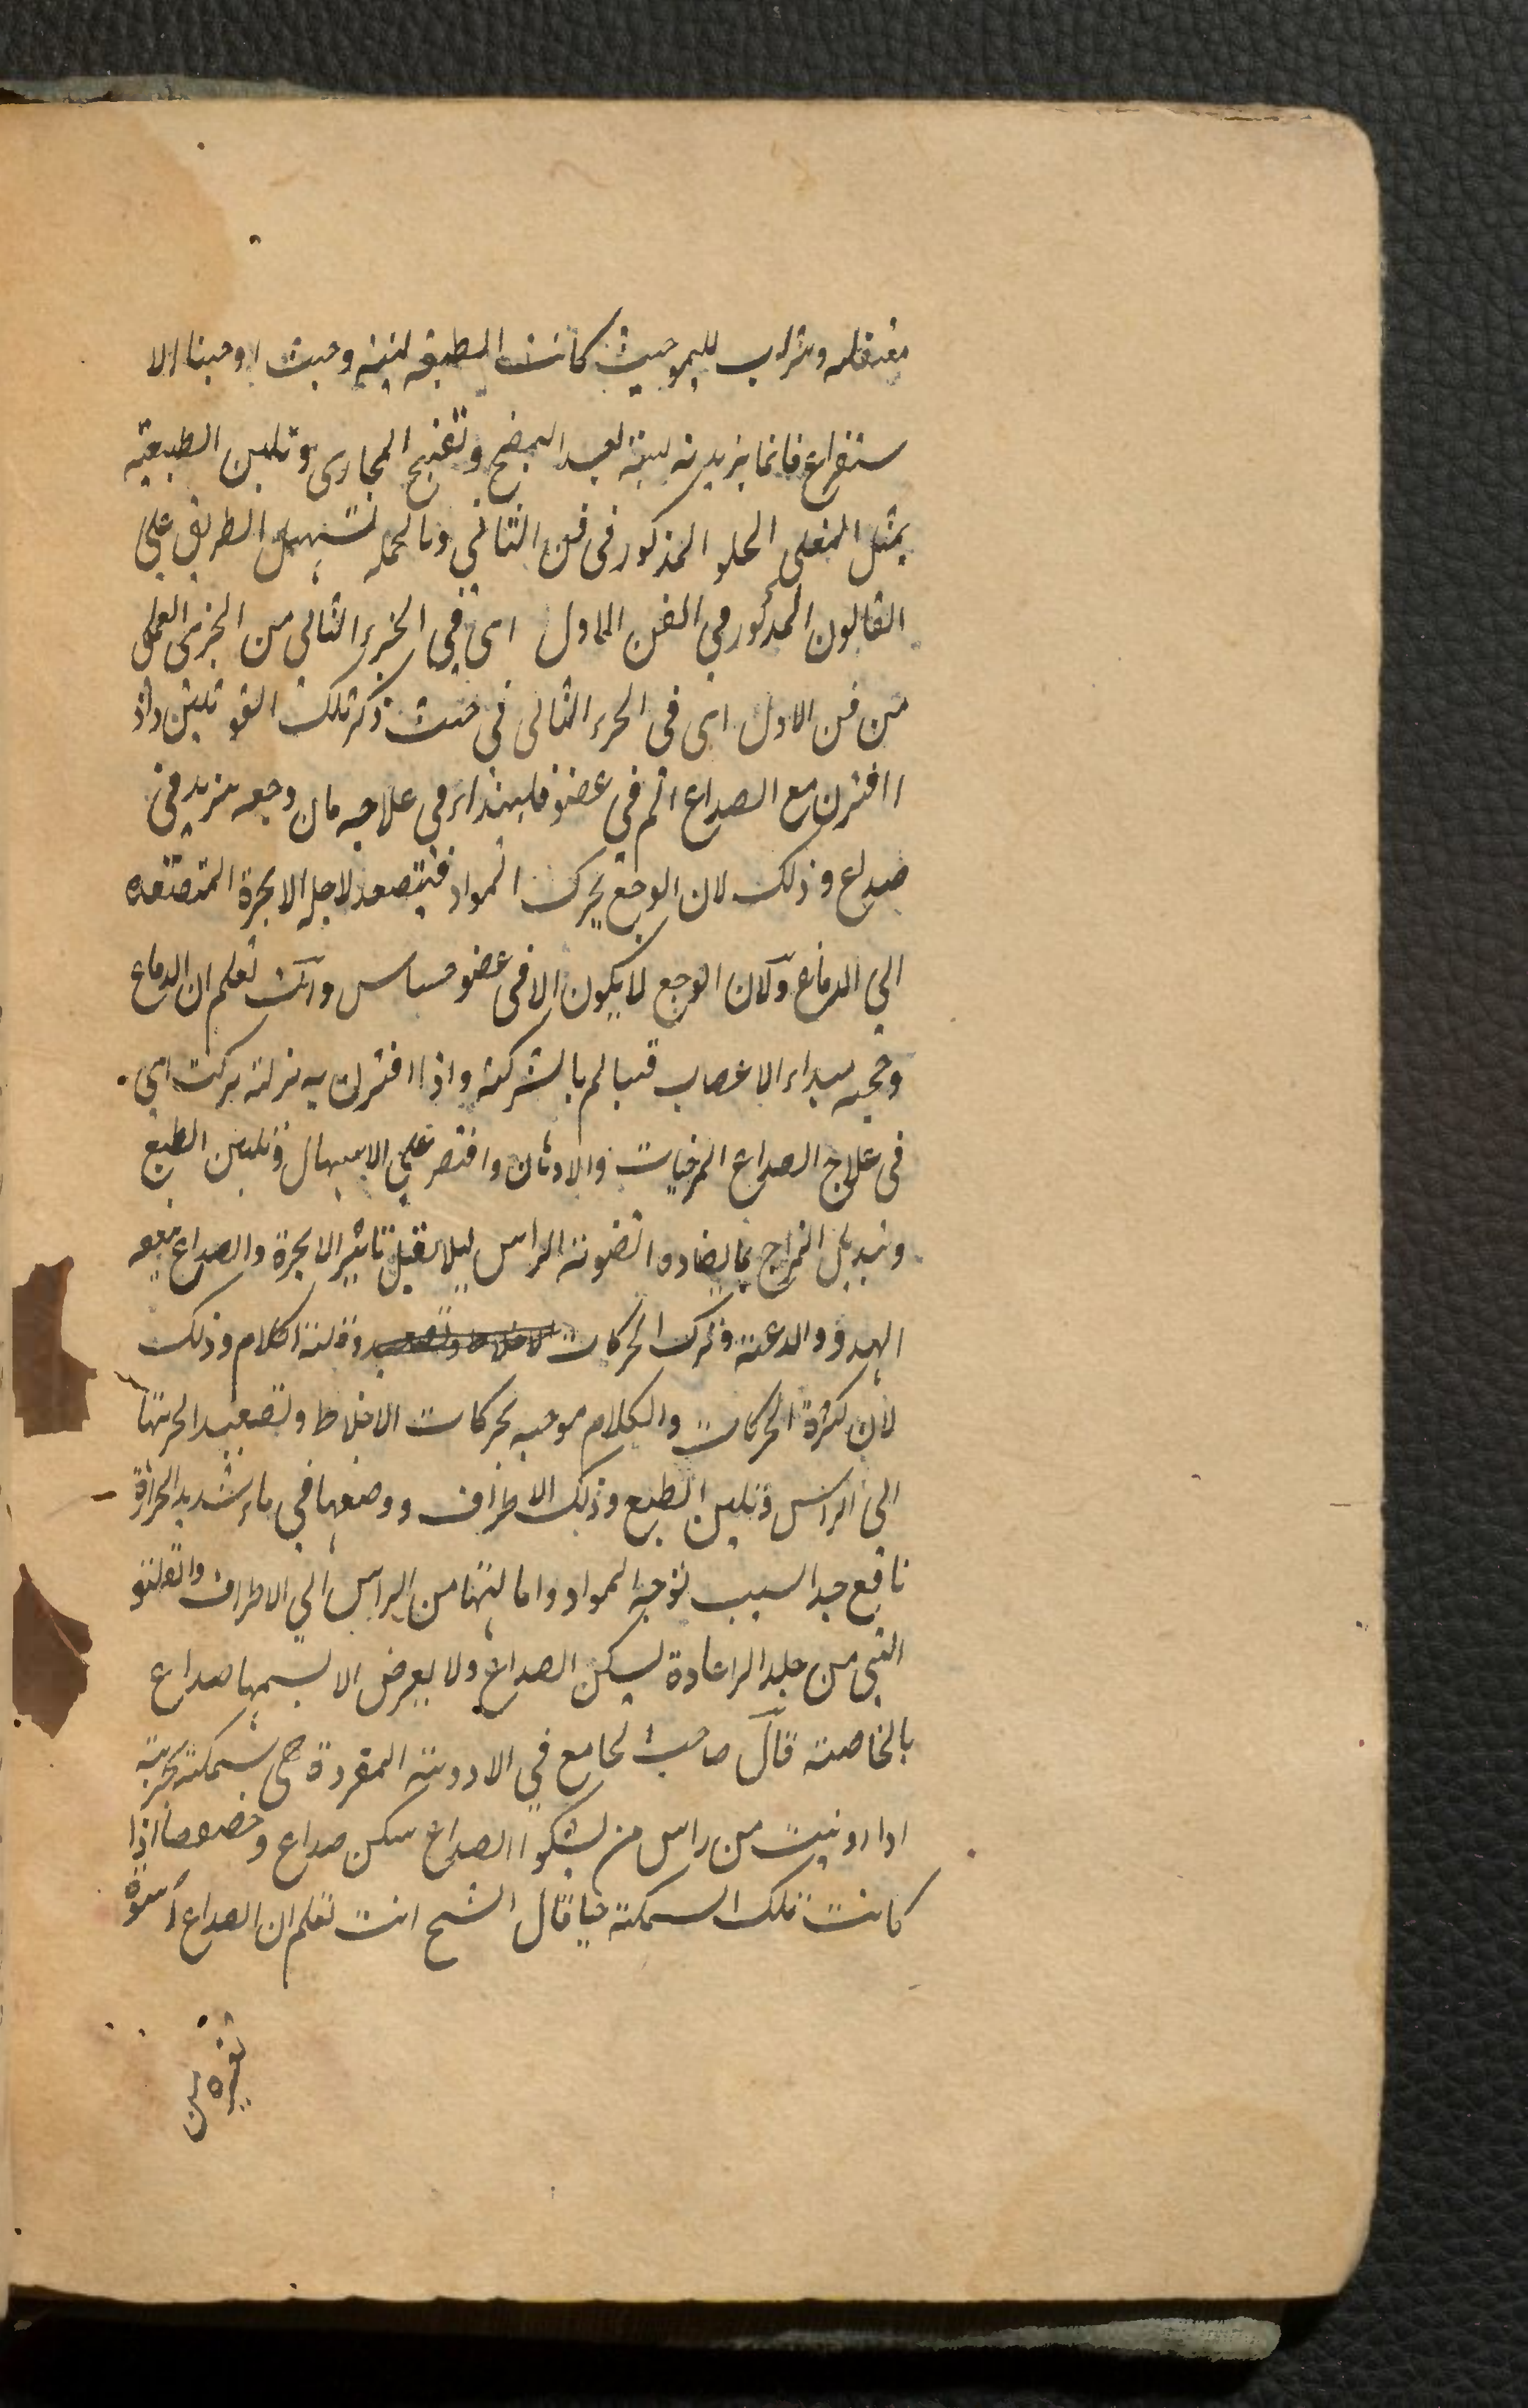 معتقله وشراب لليمو حيث كانت الطبيعه لينة وحيث اوجبنا الا
ستفراغ فانما يزيد به لينة بعد النضج وتفتيح المجاري وتليين الطبيعة
بمثل المغلي الحلو المذكور في فن الثاني وبالجمله تسهيل الطريق على
القانون المذكور في الفن الاول اى في الجزء الثاني من الجزى العملي
من فن الاول اى فى الجزء الثانى فى حيث ذكر تلك القوانين واذ
ا اقترن مع الصداع الم في عضو فليبتداء في علاجه فان وجعه يزيد في
صداع وذلك لان الوجع يحرك المواد فيتصعد لاجل الابخرة المتصعده
الى الدماغ ولان الوجع لا يكون الا فى عضو حساس وانت تعلم ان الدماغ
وحجبه مبداء الاعصاب فيالم بالشركة واذا اقترن به نزلة تركت اى
فى علاج الصداع المرخيات والادهان واقتصر على الاسهال وتليين الطبع
وتبديل المزاج بما يضاده لتقوية الراس ليلا يقبل تاثير الابخرة والصداع ينفعه
الهدو والدعة وترك الحركات الاخلاط وتصعيد وقلة الكلام وذلك
لان كثرة الحركات والكلام موجبه بحركات الاخلاط وتصعيد ابخرتها
الى الراس وتليين الطبع وذلك الاطراف ووضعها في ماء شديد الحرارة
نافع جدا لسبب توجه المواد وامالتها من الراس الى الاطراف والقلنسو
التي من جلد الراعادة يسكن الصداع ولا يعرض الا بسمها صداع
بالخاصة قال صاحب الجامع في الادوية المفردة هى سمكة بحرية
اذا ادنيت من راس من يشكوا الصداع سكن صداع وخصوصا اذا
كانت تلك السمكة حيا قال الشيخ انت تعلم ان الصداع اسوة